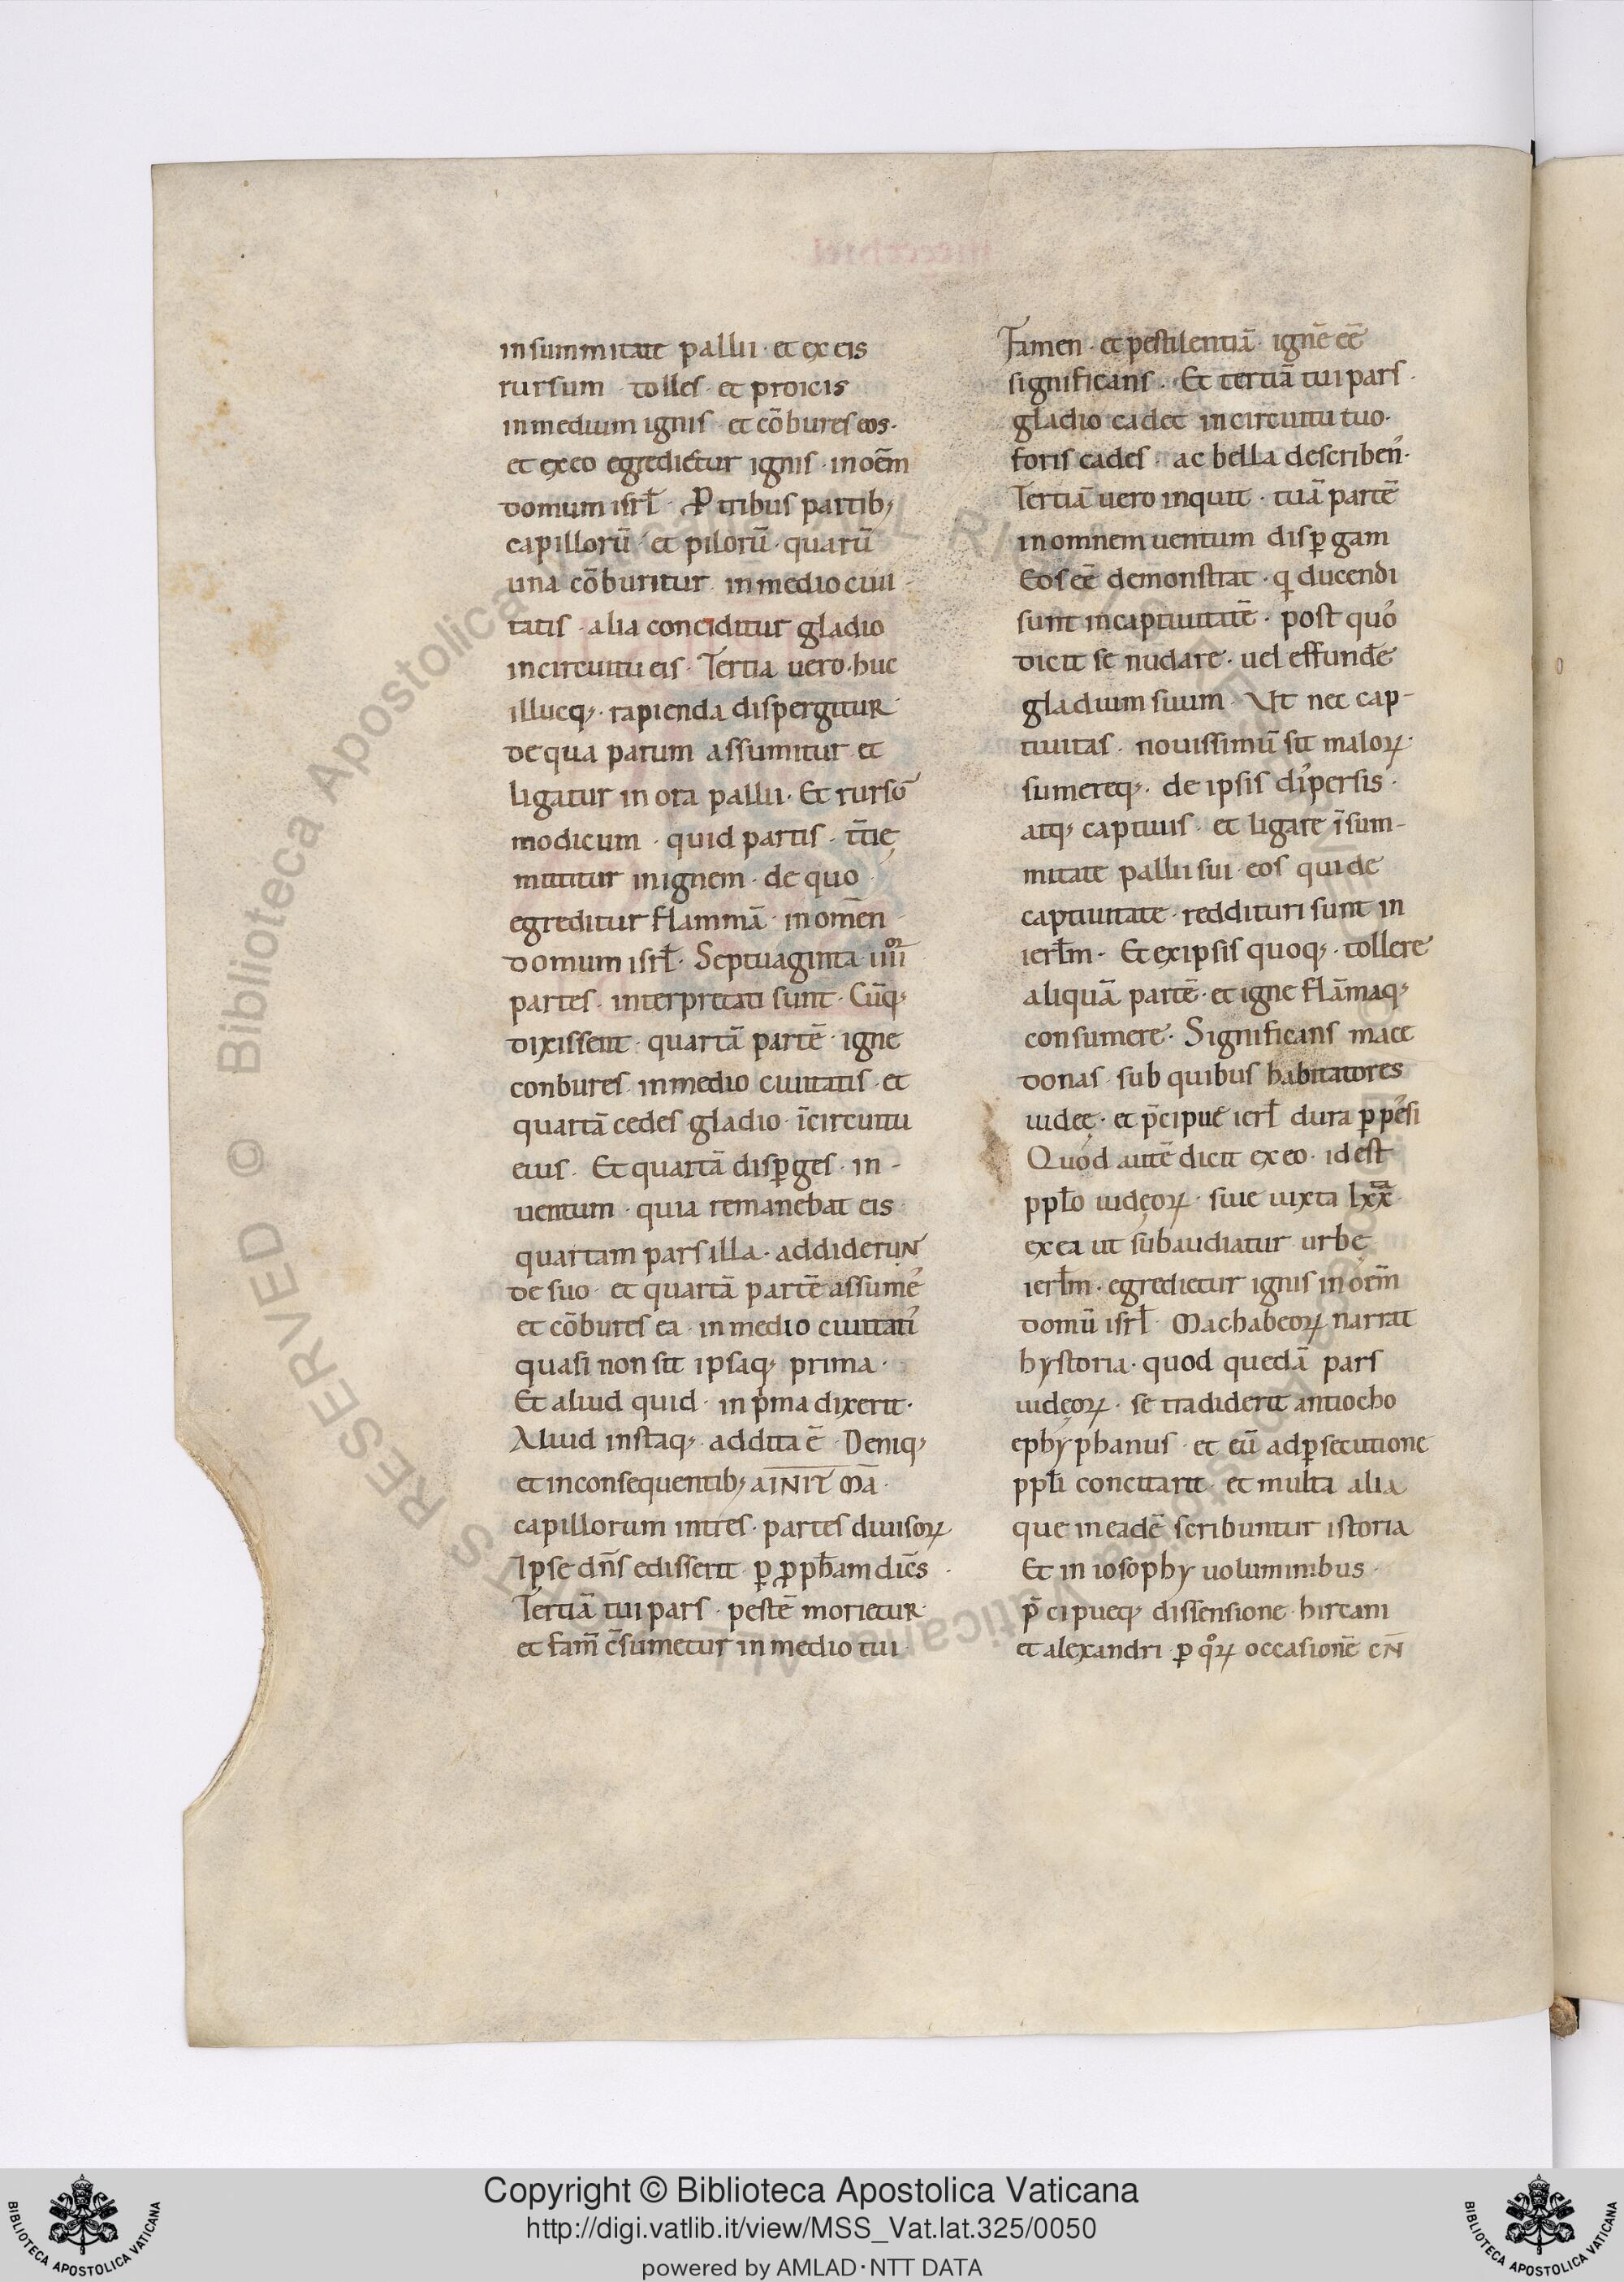 in summitate pallii · et ex eis
rursum · tolles · et proicis
in medium ignis · et cōbures eos ·
et ex eo egredietur ignis · in oēm
domum isrł · P tribus partib;
capillorū · et pilorū · quarū
una cōburitur in medio ciui-
tatis · alia conciditur gladio
in circuitu eis · Tertia uero · huc
illucq; · rapienda dispergituR
de qua parum assumitur et
ligatur in ora pallii · Et rursū
modicum · quid partis · t̄tię
mittitur in ignem · de quo ·
egreditur flammā · in omēn
domum isrł · Septuaginta · iiiiᵒʳ
partes · interpretati sunt · Cūq;
dixissent · quartā partē · igne
conbures in medio ciuitatis · et
quartā cedes gladio · īcircuitu
eius · Et quartā disꝑges · in-
uentum · quia remanebat eis
quartam pars illa · addideruN̄
de suo · et quartā partē assume᾽
et cōbures ea · in medio ciuitati᾽
quasi non sit ipsaq; prima ·
Et aliud quid · in p̄ma dixerit ·
Aliud in istaq; addita ē · Deniq;
et in consequentib; aiNIT mā ·
capillorum in tres · partes diuisoꝝ
Ipse dn̄s edisserit · ꝑ ꝓpħam dic̄s
Tertiā tui pars · pestē morietuR
et fam̄ c̄sumetur in medio tui ·
Famen · et pestilentiā · ignē eē
significans · Et tertiā tui pars ·
gladio cadet in circuitu tuo ·
foris cades · ac bella describen᾽ ·
Tertiā uero inquit · tuā partē
in omnem uentum disꝑgam
Eos eē demonstrat · q ducendi
sunt in captiuitatē · post quo᾽
dicit se nudare · uel effunde
gladium suum · Ut nec cap-
tiuitas · nouissimū sit maloꝝ ·
sumereq; · de ipsis di᾽persis ·
atq; captiuis · et ligare īsum-
mitate pallii sui · eos qui de
captiuitate · reddituri sunt in
ierłm · Et ex ipsis quoq; · tollere
aliquā partē · et igne flāmaq;
consumere · Significans mace
donas · sub quibus habitatores
iudeę · et p̄cipue ierł dura ꝑpe᾽si
Quod autē dicit ex eo · id est
ppło iudęoꝝ · siue iuxta lxx̄
ex ea ut subaudiatur urbę
ierłm · egredietur ignis in oēm
domū isrł · Machabeoꝝ narrat
hystoria · quod quedā pars
iudęoꝝ · se tradiderit antiocho
ephyphanus · et eū adꝑsecutione
ppłi concitarit · et multa alia
que in eadē scribuntur istoria
Et in iosophy uoluminibus ·
p̄cipueq; dissensione hircani
et alexandri ꝑ qᵒꝝ occasionē eN̄
Copyright © Biblioteca Apostolica Vaticana
http://digi.vatlib.it/view/MSS_Vat.lat.325/0050
powered by AMLAD·NTT DATA